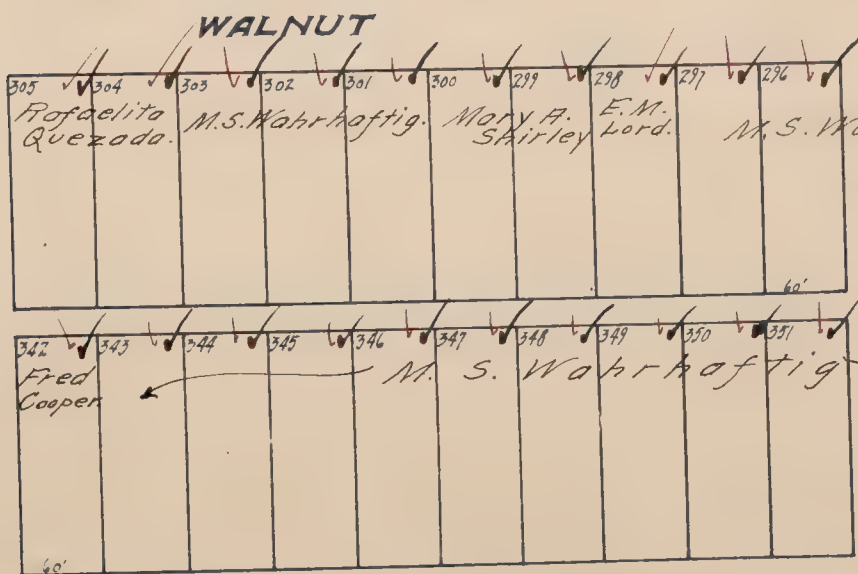 WALNUT
305 304 303 302 301 300 299 298 297 296
Rafaelita Quezada.
M.S. Wahrhaftig.
Mary A. Shirley
E.M. Lord.
M. S. Wa
60'
342 343 344 345 346 347 348 349 350 351
Fred Cooper
M. S. Wahrhaftig
60'